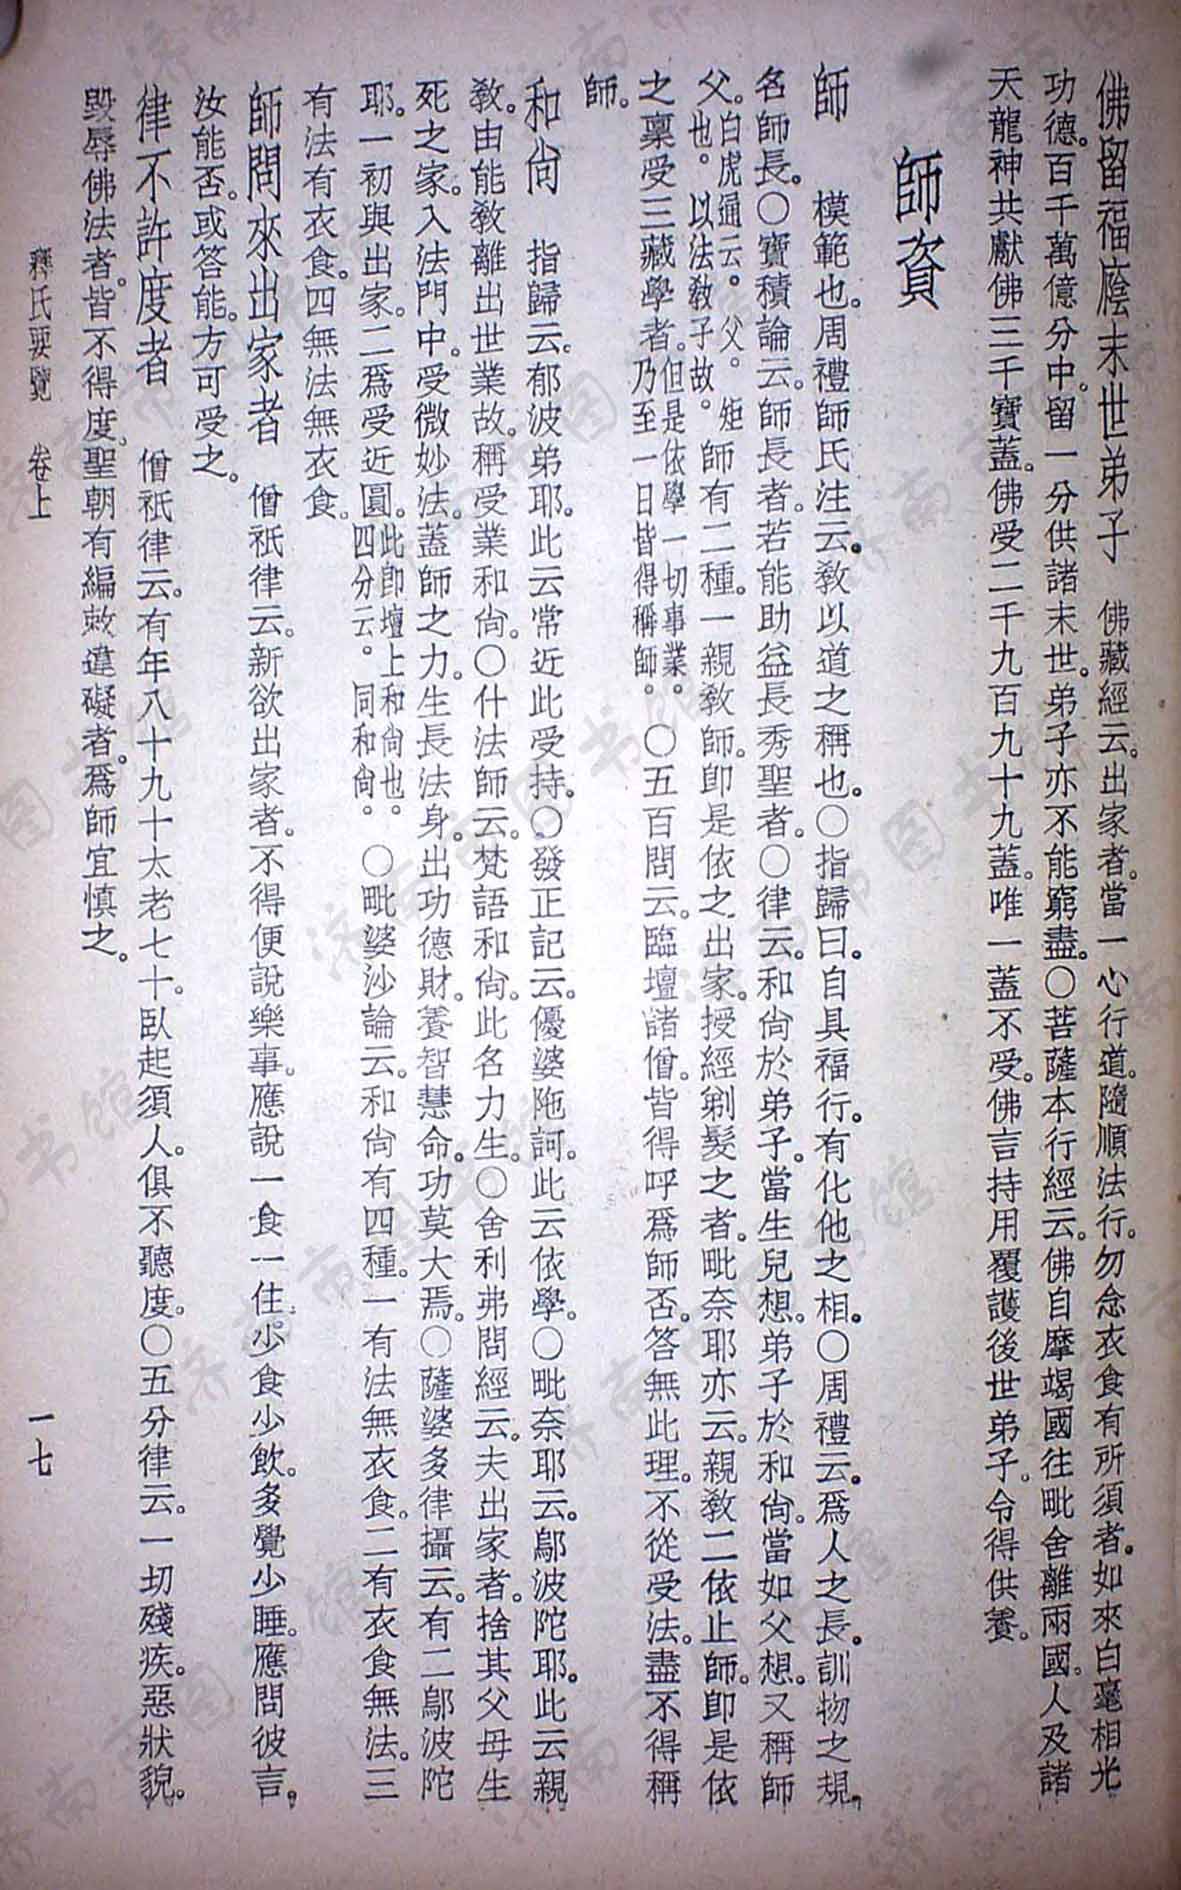 佛留福廕末世弟子　佛藏經云。出家者。當一心行道。隨順法行。勿念衣食有所須者。如來白毫相光
功德。百千萬億分中。留一分供諸末世。弟子亦不能窮盡。〇菩薩本行經云。佛自摩竭國往毗舍離兩國。人及諸
天龍神共獻佛三千寶蓋。佛受二千九百九十九蓋。唯一蓋不受。佛言持用覆護後世弟子。令得供養。
師資
師　模範也。周禮師氏注云。教以道之稱也。〇指歸曰。自具福行。有化他之相。〇周禮云。爲人之長。訓物之規。
名師長。〇寶積論云。師長者。若能助益長秀聖者。〇律云。和尙於弟子。當生兒想。弟子於和尙。當如父想。又稱師
父。白虎通云。父。矩也。以法教子故。師有二種。一親教師。卽是依之出家。授經剃髮之者。毗奈耶亦云。親教二依止師。卽是依
之稟受三藏學者。但是依學一切事業。乃至一日皆得稱師。〇五百問云。臨壇諸僧。皆得呼爲師否。答無此理。不從受法。盡不得稱
師。
和尙　指歸云。郁波弟耶。此云常近此受持。〇發正記云。優婆陁訶。此云依學。〇毗奈耶云。鄔波陀耶。此云親
教。由能教離出世業故。稱受業和尙。〇什法師云。梵語和尙。此名力生。〇舍利弗問經云。夫出家者。捨其父母生
死之家。入法門中。受微妙法。蓋師之力。生長法身。出功德財。養智慧命。功莫大焉。〇薩婆多律攝云。有二鄔波陀
耶。一初與出家。二爲受近圓。此卽壇上和尙也。四分云。同和尙。〇毗婆沙論云。和尙有四種。一有法無衣食。二有衣食無法。三
有法有衣食。四無法無衣食。
師問來出家者　僧祇律云。新欲出家者。不得便說樂事。應說一食一住。少食少飲。多覺少睡。應問彼言。
汝能否。或答能。方可受之。
律不許度者　僧祇律云。有年八十九十太老七十。臥起須人。俱不聽度。〇五分律云。一切殘疾。惡狀貌。
毀辱佛法者。皆不得度。聖朝有編敕違礙者。爲師宜慎之。
釋氏要覽　卷上　一七
濟南市图书馆